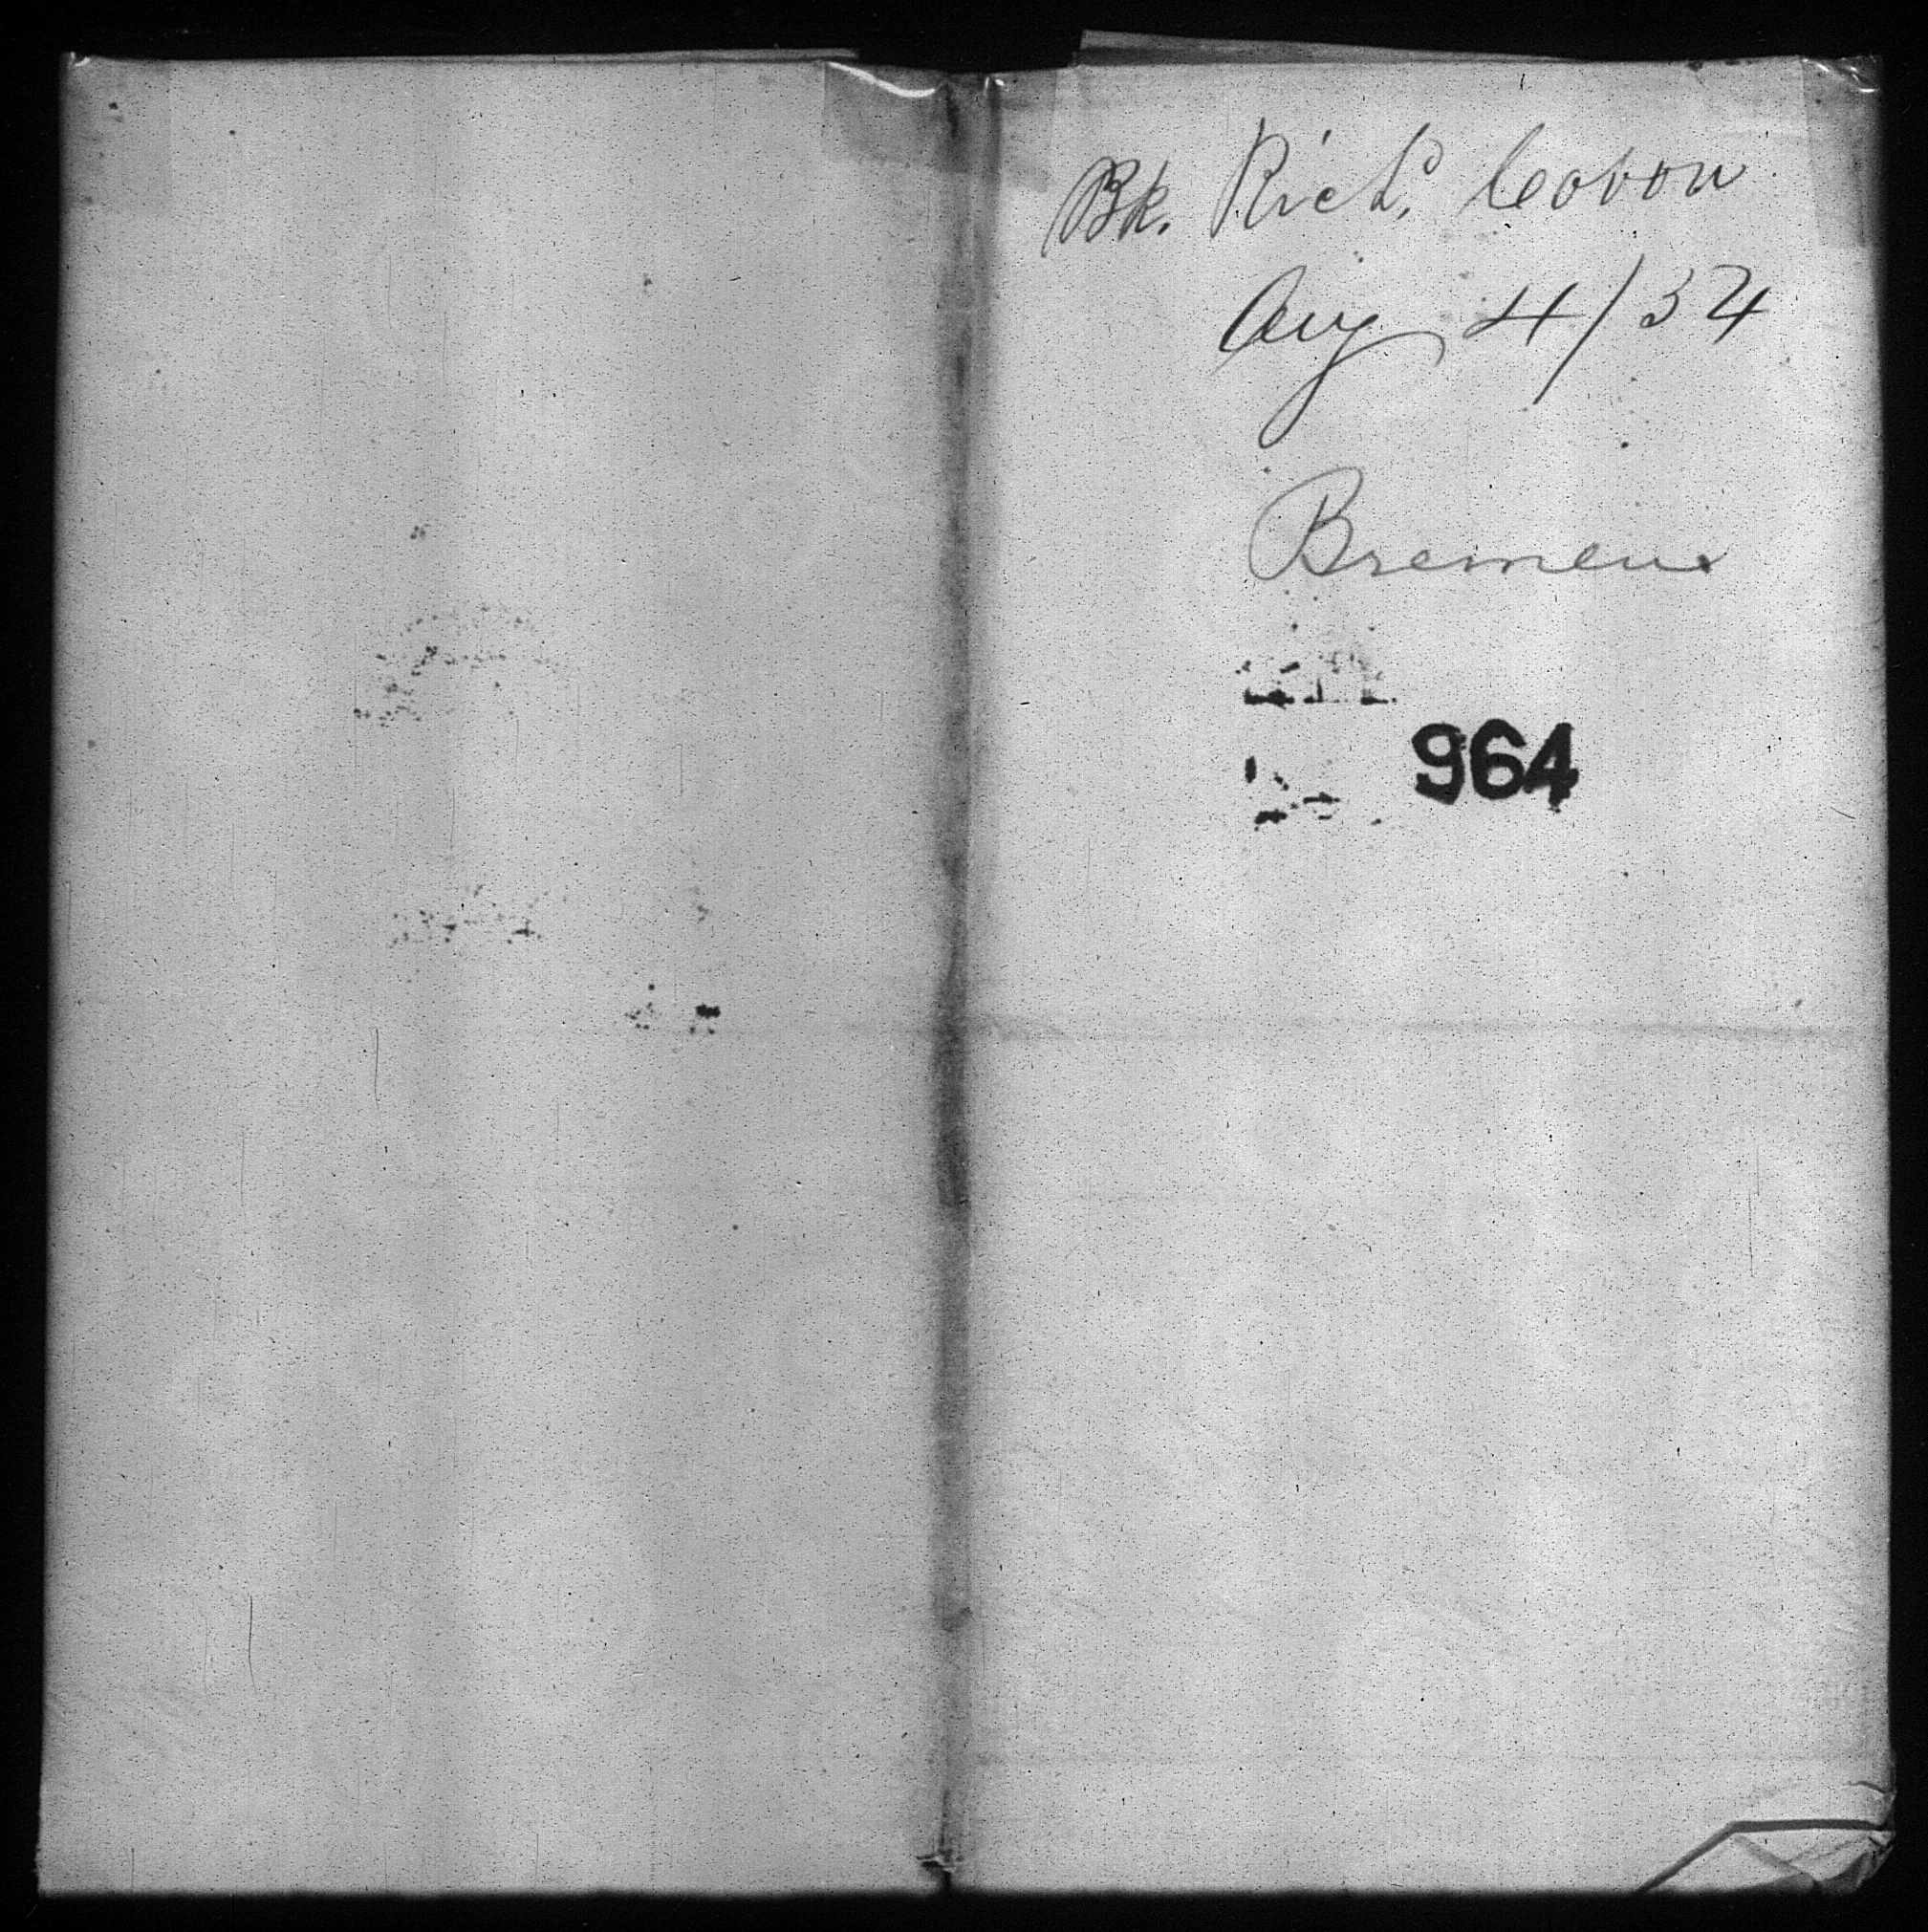 Bk. Richd. Covow
Aug 4/34
Bremen
964